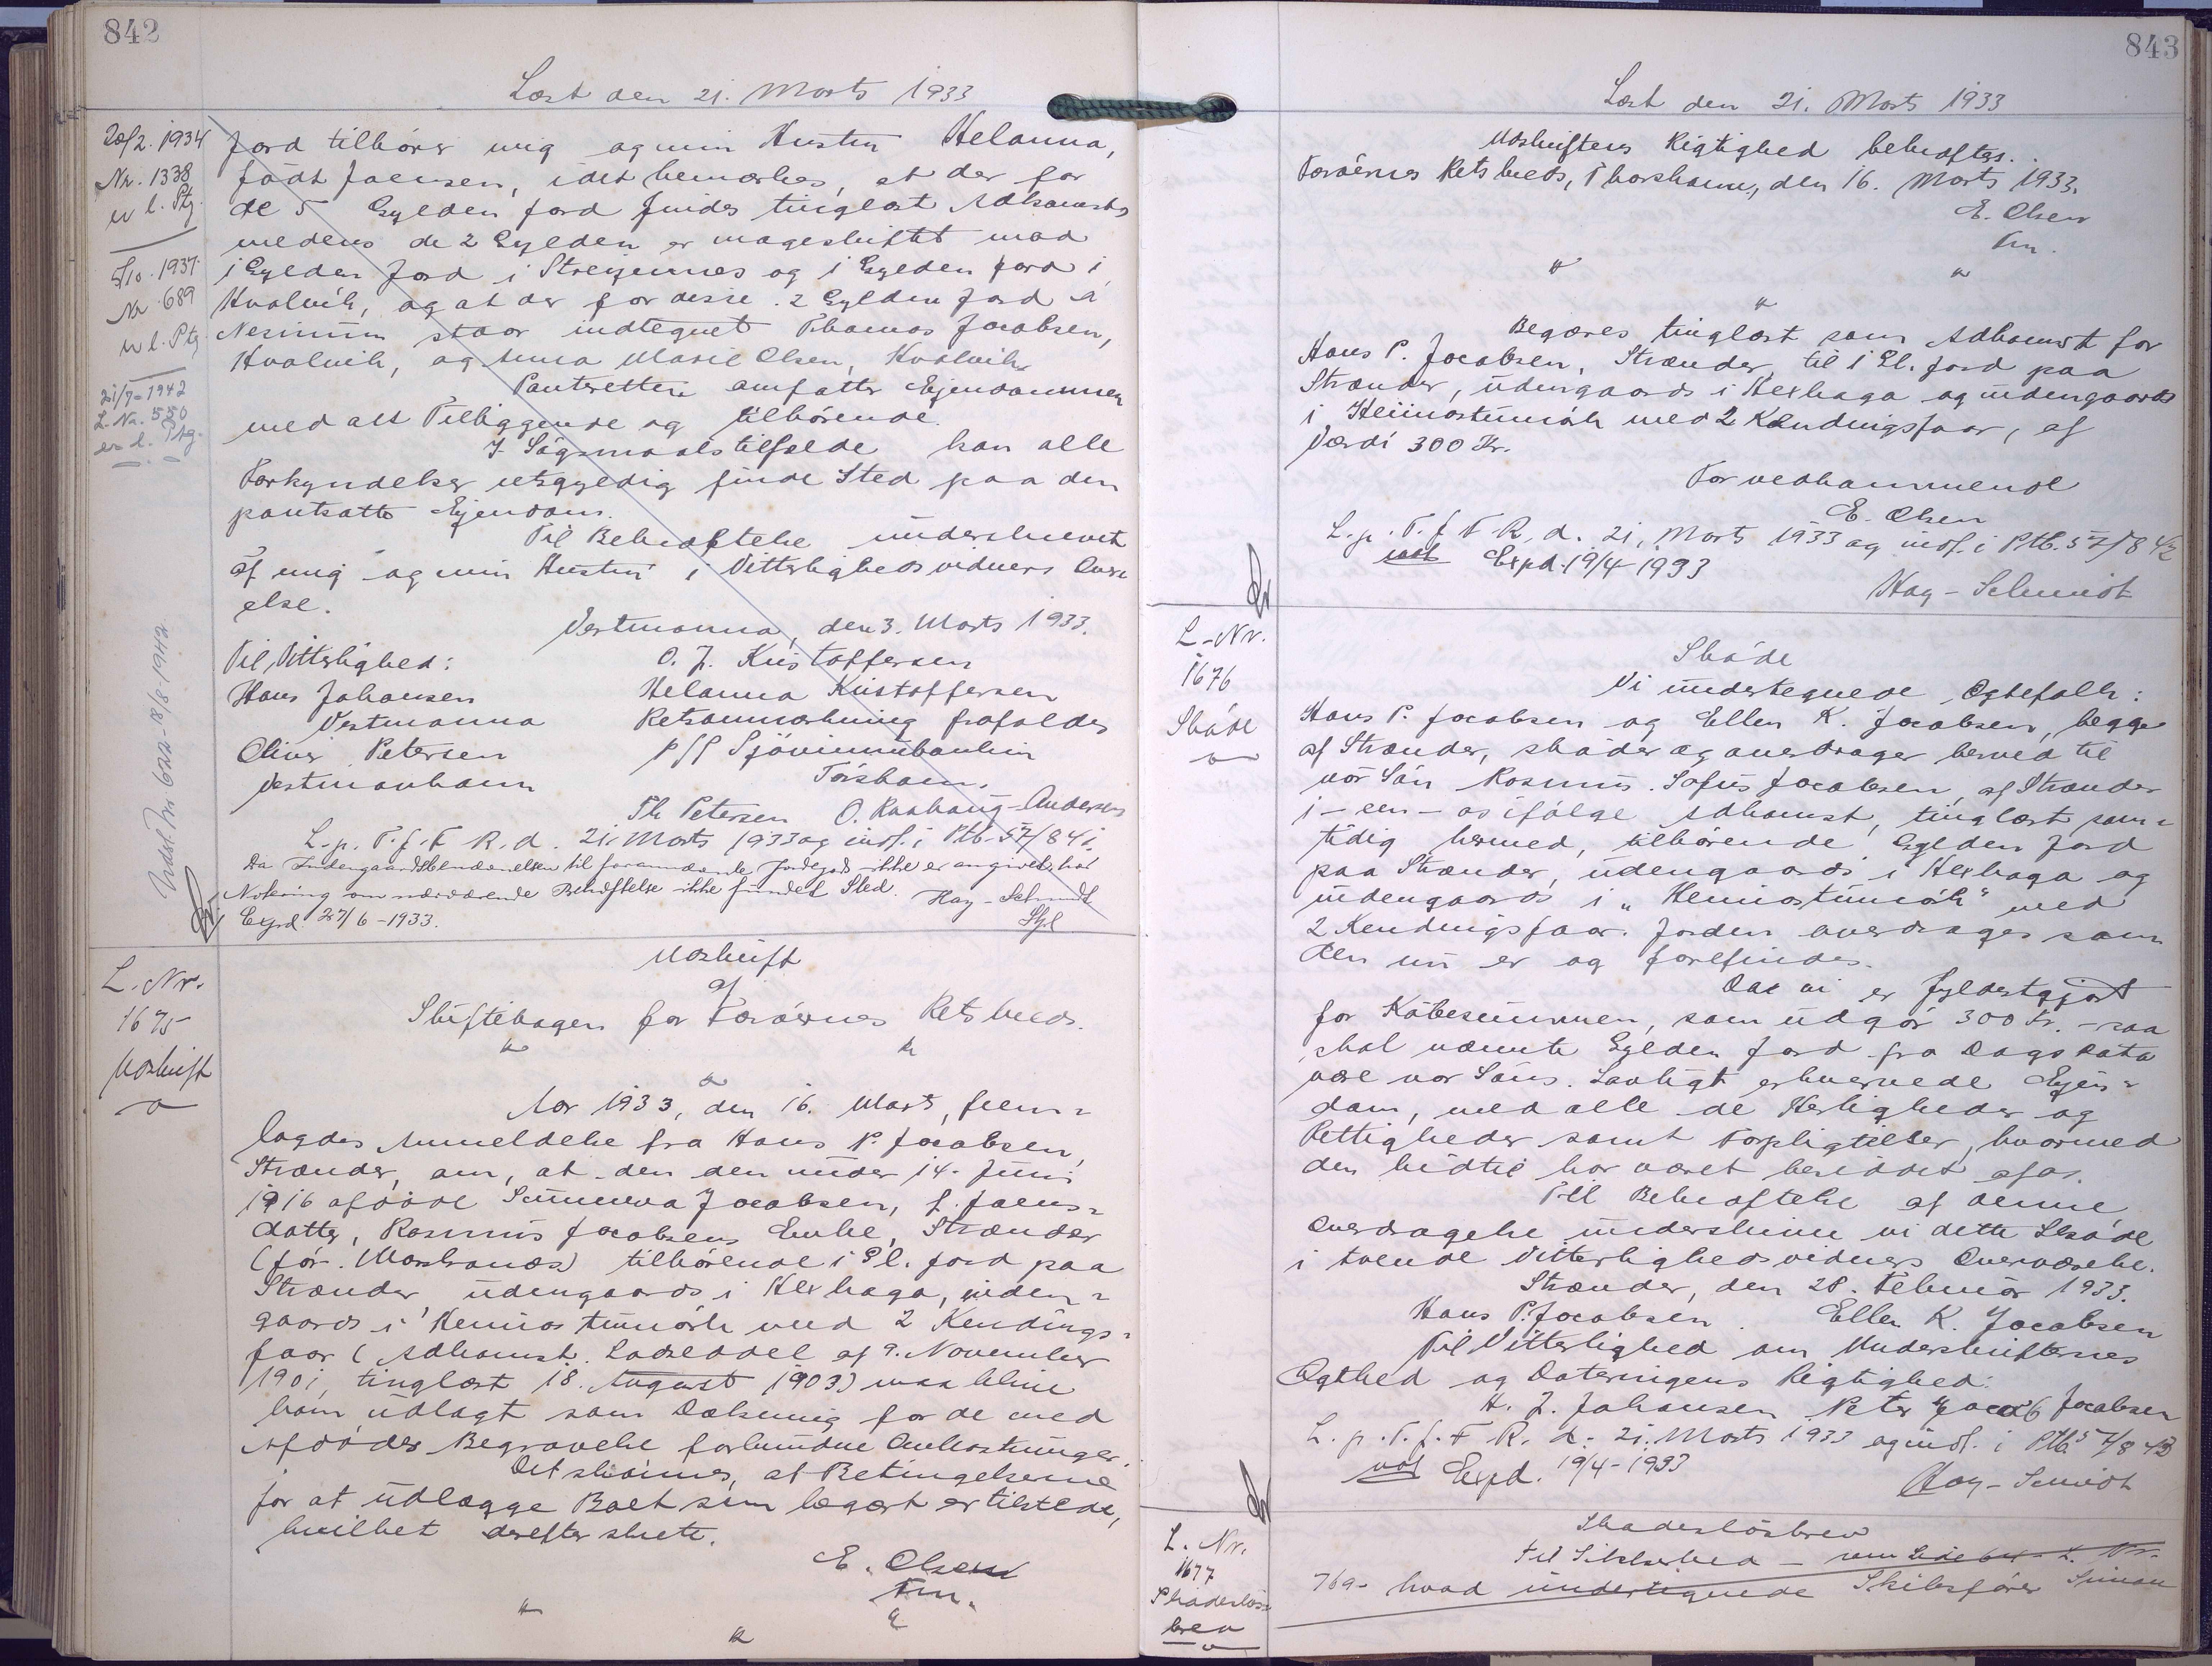 842
Læst den 21. Marts 1933
20/2. 1934
Nr. 1338
u l. Ptg.
5/10. 1937.
Nr 689
u l. Ptg.
21/7-1942
L. Nr. 550
en l. Ptg.
Indst. Nr 622-18/8-1942
Jord tilhører mig og min Hustru Helanna,
født Joensen, idet bemærkes, at der for
de 5 Gylden Jord findes tinglæst Adkomst,
medens de 2 Gylden er mageskiftet mod
1 Gylden Jord i Streymnes og 1 Gylden Jord i
Hvalvik, og at der for disse 2 Gylden Jord i
Nesinum staar indtegnet Thomas Jacobsen,
Hvalvik, og Anna Marie Olsen, Hvalvik.
Panteretten omfatter Ejendommen
med alt Tilliggende og tilhørende.
I Søgsmaalstilfælde kan alle
Forkyndelser retsgyldig finde Sted paa den
pantsatte Ejendom.
Til Bekræftelse underskrevet
af mig og min Hustru i Vitterlighedsvidners Over
else.
Vestmanna, den 3. Marts 1933.
Til Vitterlighed: O. J. Kristoffersen
Hans Johansen Helanna Kristoffersen
Vestmanna Retsanmærkning frafaldes
Oliver Petersen p/f Sjóvinnubankin
Vestmanhavn Tórshavn.
Th Petersen O. Raahaug-Andersen
L. p. T. f. F. R. d. 21. Marts 1933 og indf. i Ptb. 57/841.
Da Indengaardsbenævnelsen til forannævnte Jordegods ikke er angivet, har
Notering om nærværende Behæftelse ikke fundet Sted. Hay-Schmidt
Expd. 27/6-1933. Stpl
L. Nr.
1675
Udskrift
Udskrift
af
Skiftebogen for Færøernes Retskreds.
Aar 1933, den 16. Marts, frem-
lagdes Anmeldelse fra Hans P. Jacobsen,
Strænder, om, at den den under 14. Juni
1916 afdøde Sunneva Jacobsen, f. Joens-
datter, Rasmus Jacobsens Enke, Strænder
(før. Morskranes) tilhørende 1 Gl. Jord paa
Strænder, udengaards i Hexhaga, inden-
gaards i Heimastumørk med 2 Kendings-
faar (Adkomst. Lodseddel af 9. November
1901, tinglæst 18. August 1903) maa blive
ham udlagt som Dækning for de med
Afdødes Begravelse forbundne Omkostninger.
Det skønnes, at Betingelserne
for at udlægge Boet som begært er tilstede,
hvilket derefter skete.
E. Olsen
Fm.
843
Læst den 21. Marts 1933
Udskriftens Rigtighed bekræftes.
Færøernes Retskreds, Thorshavn, den 16. Marts 1933.
E. Olsen
Fm.
Begæres tinglæst som Adkomst for
Hans P. Jacobsen, Strænder, til 1 Gl. Jord paa
Strænder, udengaards i Hexhaga og indengaards
i Heimastumørk med 2 Kendingsfaar, af
Værdi 300 Kr.
For vedkommende
E. Olsen
L. p. T. f. F. R. d. 21. Marts 1933 og indf. i Ptb. 57/842
not Expd. 19/4-1933
Hay-Schmidt
L. Nr.
1676
Skøde
Skøde
Vi undertegnede Ægtefolk:
Hans P. Jacobsen og Ellen K. Jacobsen, begge
af Strænder, skøder og overdrager herved til
vor Søn Rasmus Sofus Jacobsen, af Strænder
1 - een - os ifølge Adkomst, tinglæst sam-
tidig hermed, tilhørende Gylden Jord
paa Strænder, udengaards i Hexhaga og
indengaards i "Heimastumørk" med
2 Kendingsfaar. Jorden overdrages som
den nu er og forefindes.
Da vi er fyldestgjort
for Købesummen, som udgør 300 Kr. - saa
skal nævnte Gylden Jord fra Dags Dato
være vor Søns Lovligt erhvervede Ejen-
dom, med alle de Herligheder og
Rettigheder samt Forpligtelser, hvormed
den hidtil har været besiddet af os.
Til Bekræftelse af denne
Overdragelse underskrive vi dette Skøde
i tvende Vitterlighedsvidners Overværelse.
Strænder, den 28. Februar 1933.
Hans P. Jacobsen. Ellen K. Jacobsen
Til Vitterlighed om Underskrifternes
Ægthed og Dateringens Rigtighed:
H. J. Johansen Peter Jacob Jacobsen
L. p. T. f. F. R. d. 21. Marts 1933 og indf. i Ptb 57/843
not Expd. 19/4-1933
Hay-Schmidt
L. Nr.
1677
Skadesløs-
brev
Skadesløsbrev
til Sikkerhed - som Side L. Nr.
769- hvad undertegnede Skibsfører Simon